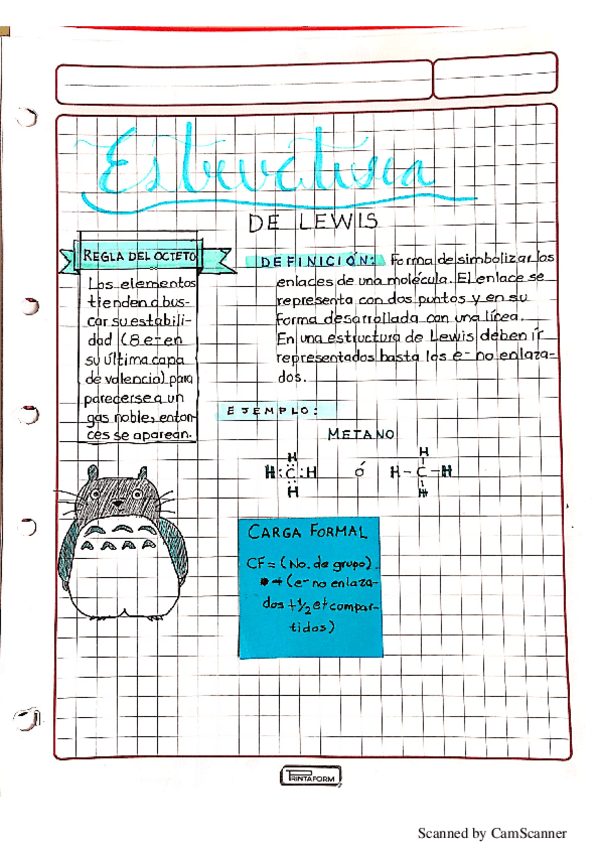 Estructura
DE LEWIS
REGLA DEL OCTETO
Los elementos
tienden a bus-
car su estabili-
dad (8 e- en
su última capa
de valencia) para
parecerse a un
gas noble, enton-
ces se aparean.
DEFINICIÓN: Forma de simbolizar los
enlaces de una molécula. El enlace se
representa con dos puntos y en su
forma desarrollada con una línea.
En una estructura de Lewis deben ir
representados hasta los e- no enlaza-
dos.
EJEMPLO:
METANO
H
H:C:H
H
ó
H
H-C-H
H
CARGA FORMAL
CF = (No. de grupo)
+ (e- no enlaza-
dos + 1/2 e- compar-
tidos)
PRINTAFORM
Scanned by CamScanner